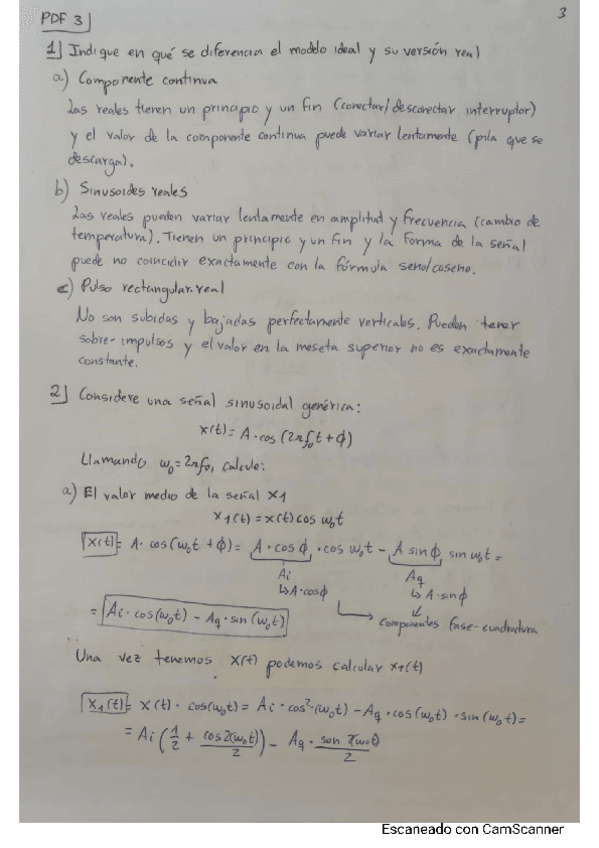 PDF 3
3
1) Indique en qué se diferencia el modelo ideal y su versión real
a) Componente continua
Las reales tienen un principio y un fin (conectar/desconectar interruptor)
y el valor de la componente continua puede variar lentamente (pila que se
descarga).
b) Sinusoides reales
Las reales pueden variar lentamente en amplitud y frecuencia (cambio de
temperatura). Tienen un principio y un fin y la forma de la señal
puede no coincidir exactamente con la fórmula seno/coseno.
c) Pulso rectangular real
No son subidas y bajadas perfectamente verticales. Pueden tener
sobre-impulsos y el valor en la meseta superior no es exactamente
constante.
2) Considere una señal sinusoidal genérica:
x(t) = A·cos (2πf₀t + ϕ)
Llamando ω₀ = 2πf₀, calcule:
a) El valor medio de la señal x1
x1(t) = x(t) cos ω₀t
x(t) = A· cos (ω₀t + ϕ) = A·cos ϕ · cos ω₀t - A sin ϕ sin ω₀t =
Ai Aq
↳ A·cosϕ ↳ A·sinϕ
= Ai · cos(ω₀t) - Aq · sin (ω₀t) → componentes fase-cuadratura
Una vez tenemos x(t) podemos calcular x1(t)
x1(t) = x(t) · cos(ω₀t) = Ai · cos²·(ω₀t) - Aq · cos(ω₀t) · sin(ω₀t) =
= Ai (1/2 + cos2(ω₀t)/2) - Aq · sen 2(ω₀t)/2
Escaneado con CamScanner